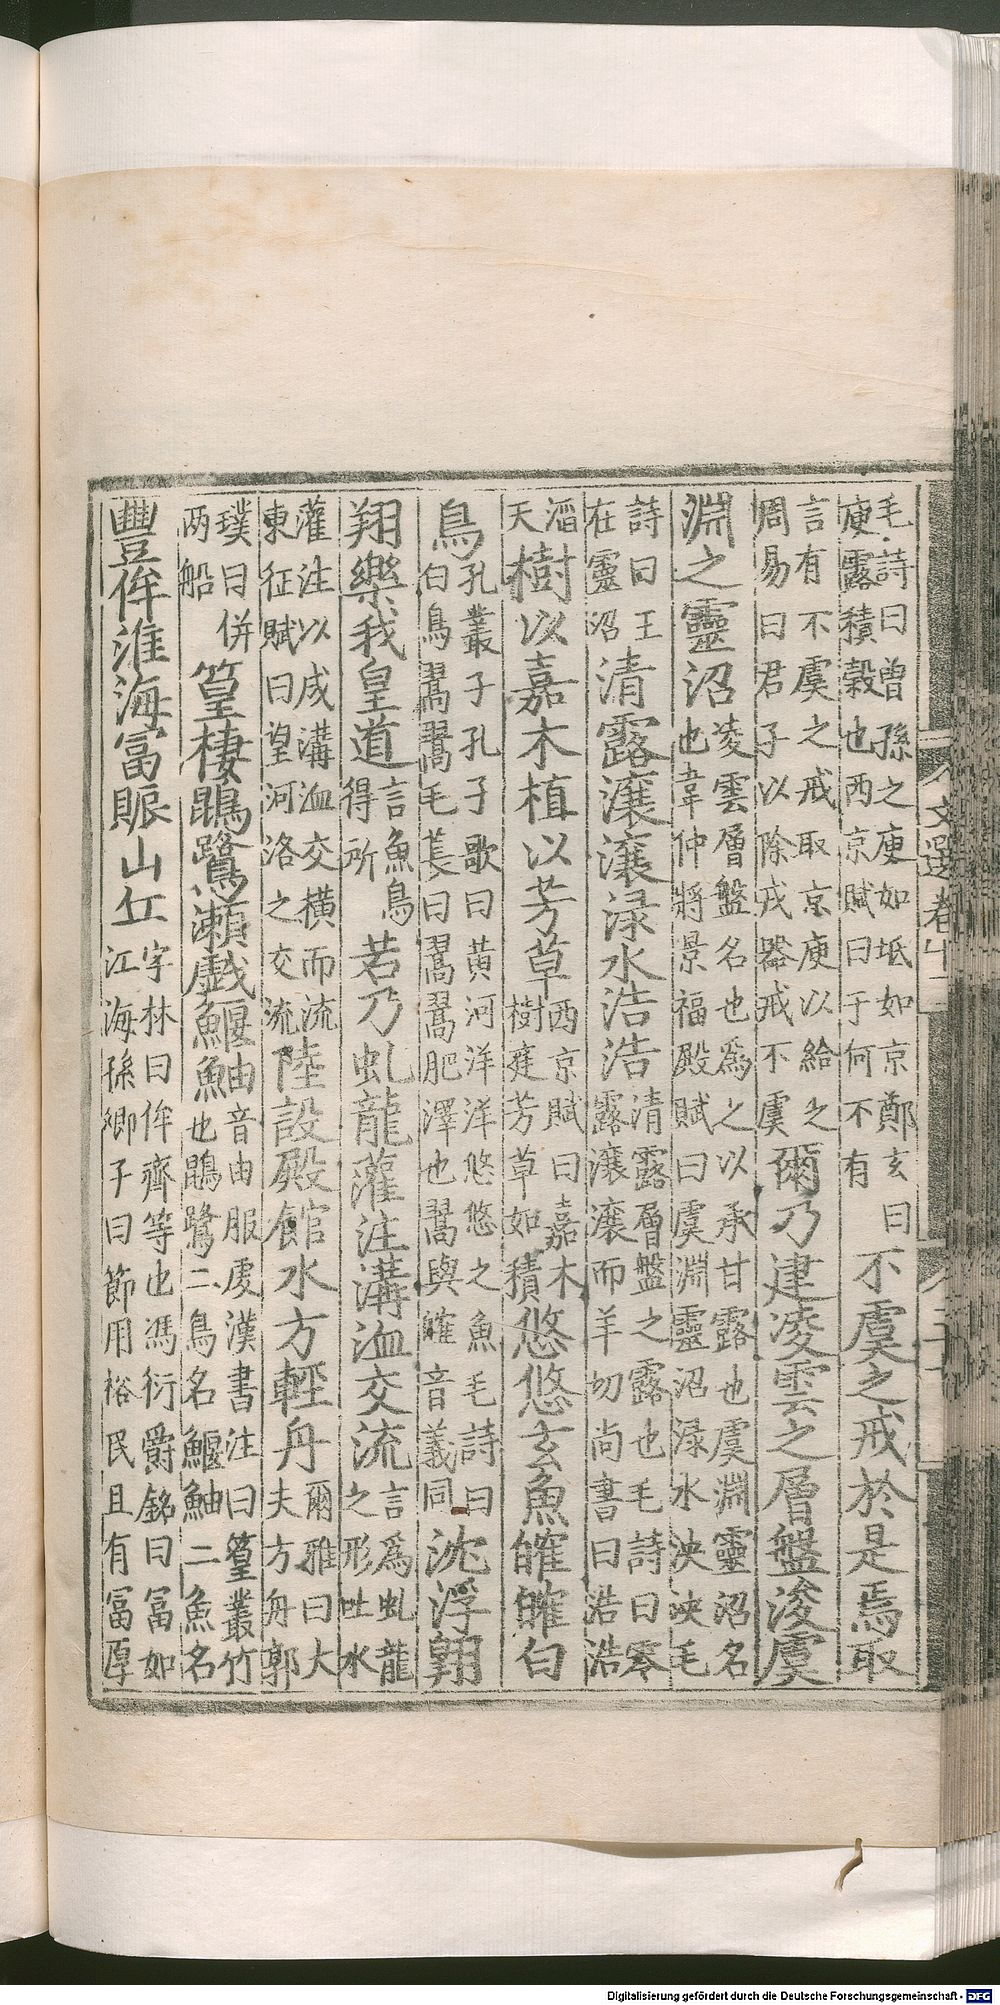 毛詩曰曾孫之庾如坻如京鄭玄曰
庾露積穀也西京賦曰于何不有
不虞之戒於是焉取
言有不虞之戒取京庾以給之
周易曰君子以除戎器戒不虞
爾乃建凌雲之層盤浚虞
淵之靈沼
凌雲層盤名也爲之以承甘露也虞淵靈沼名
也韋仲將景福殿賦曰虞淵靈沼淥水泱泱毛
詩曰王
在靈沼
清露瀼瀼淥水浩浩
清露層盤之露也毛詩曰零
露瀼瀼而羊切尚書曰浩浩
滔
天
樹以嘉木植以芳草
西京賦曰嘉木
樹庭芳草如積
悠悠玄魚㿥㿥白
鳥
孔叢子孔子歌曰黃河洋洋悠悠之魚毛詩曰
白鳥翯翯毛萇曰翯翯肥澤也翯與㿥音義同
沈浮翱
翔樂我皇道
言魚鳥
得所
若乃虬龍灌注溝洫交流
言爲虬龍
之形吐水
灌注以成溝洫交橫而流
東征賦曰望河洛之交流
陸設殿館水方輕舟
爾雅曰大
夫方舟郭
璞曰併
两船
篁棲鵾鷺瀨戲鰋鮋
音由服虔漢書注曰篁叢竹
也鵾鷺二鳥名鰋鮋二魚名
豐侔淮海富賑山丘
字林曰侔齊等也馮衍爵銘曰富如
江海孫卿子曰節用裕民且有富厚
文選卷十一
Digitalisierung gefördert durch die Deutsche Forschungsgemeinschaft - DFG